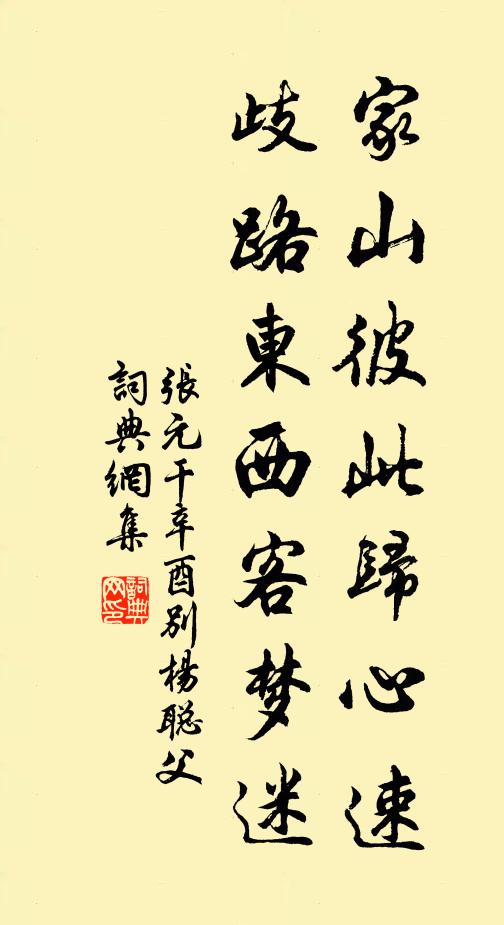 家山彼此歸心速
歧路東西客梦迷
張元干辛酉别楊聡父
詞典網集
詞典網印